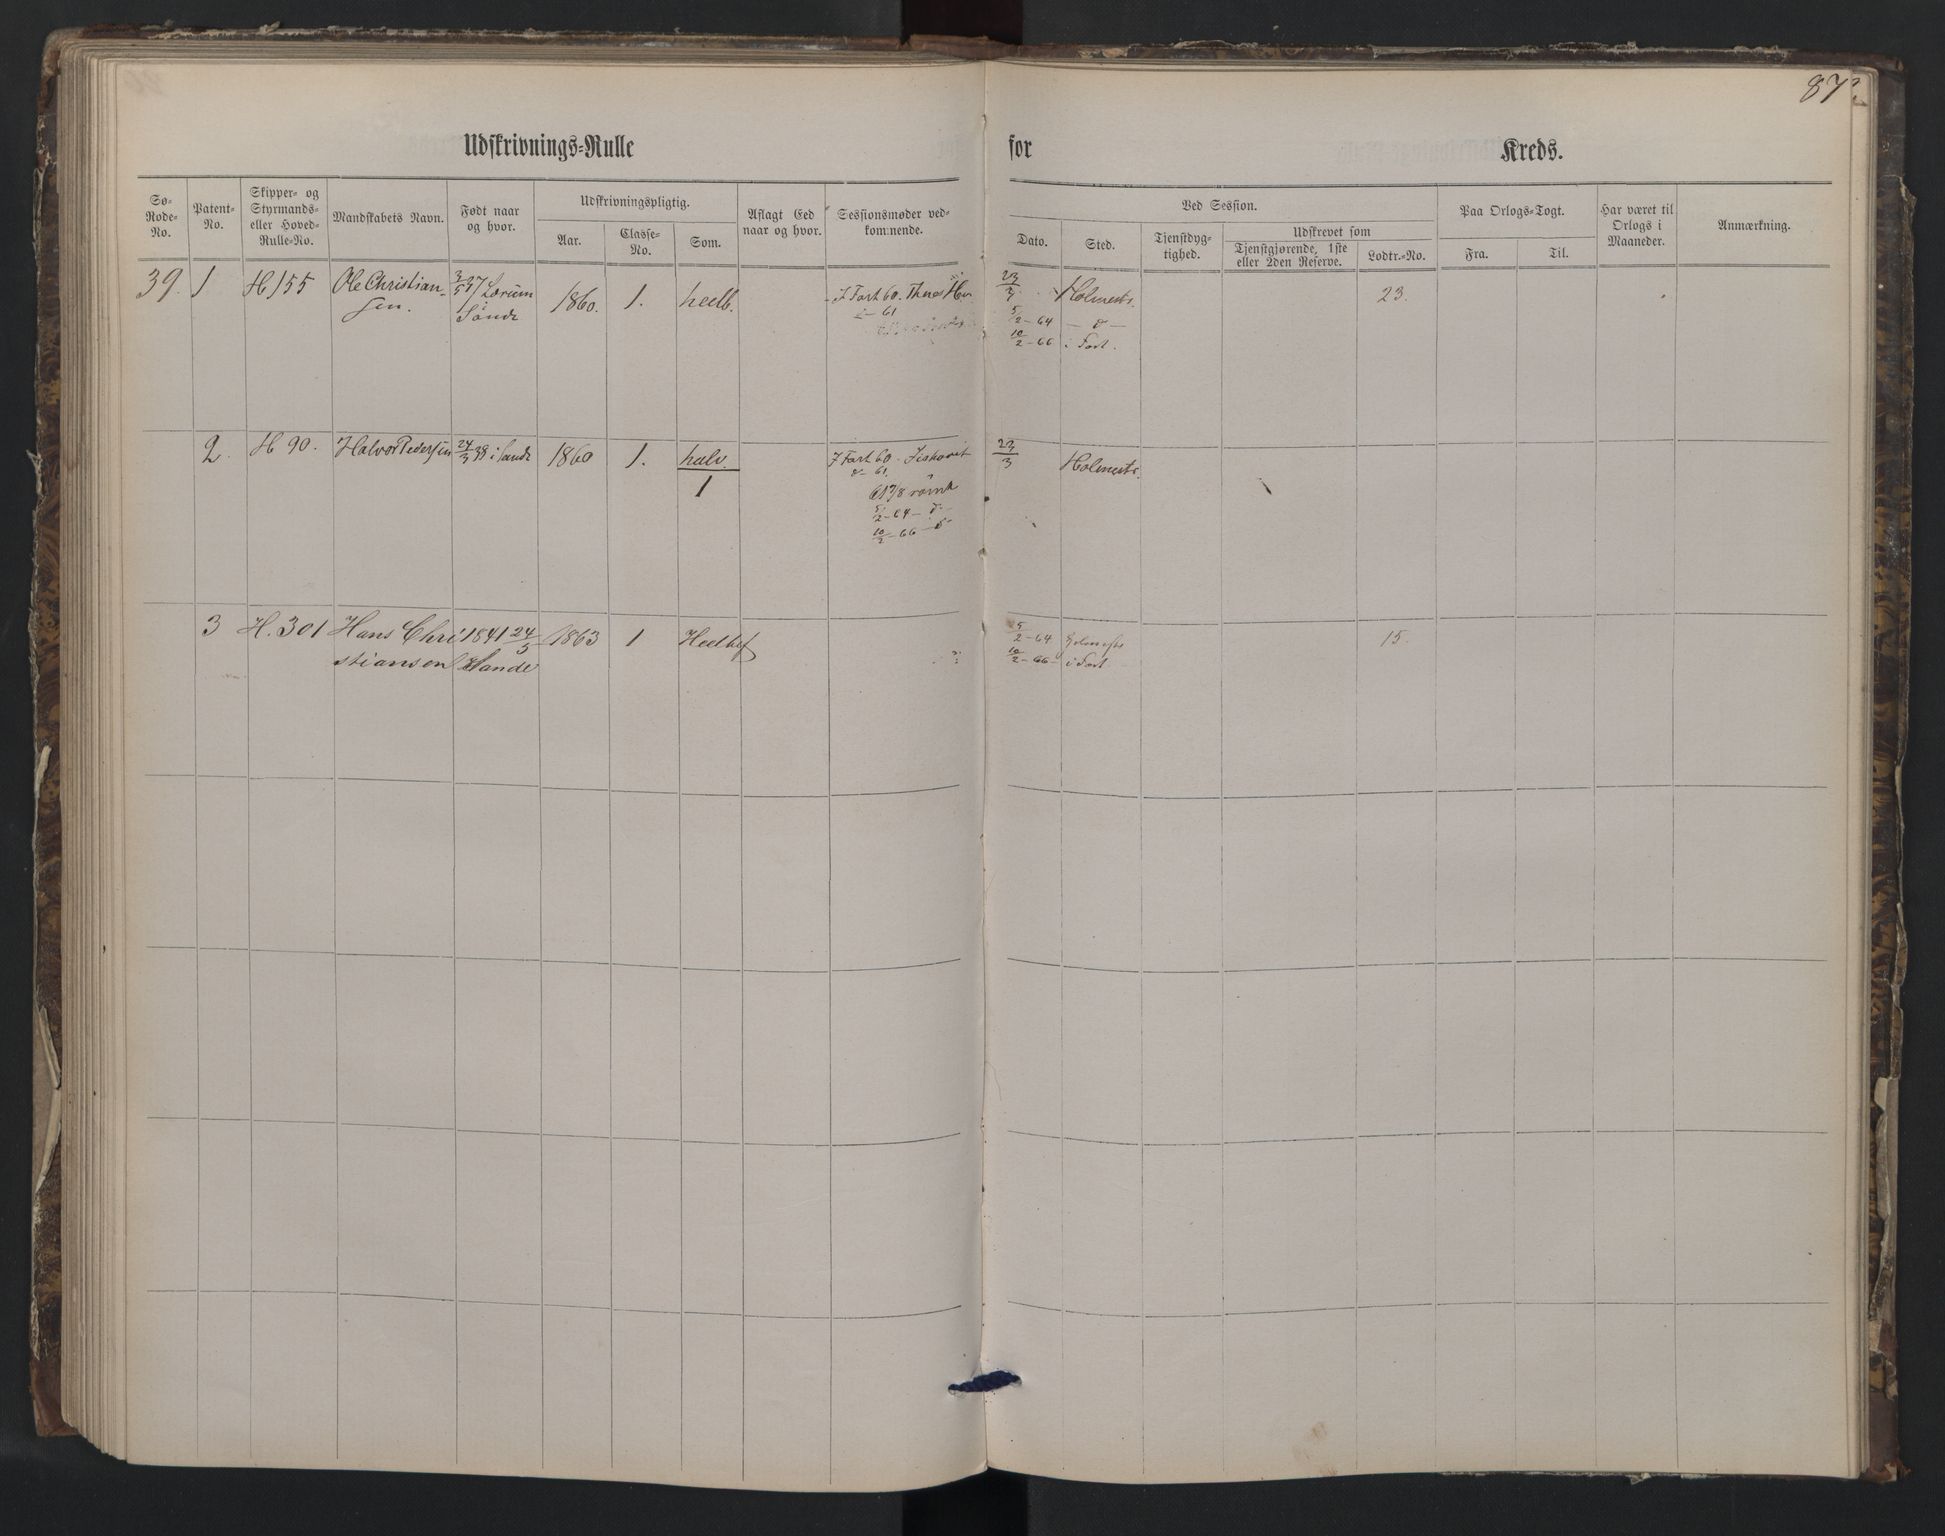 87
Udskrivnings-Rulle for Kreds.
Sø-Rode-No.
Patent-No.
Skipper- og Styrmands- eller Hoved-Rulle-No.
Mandskabets Navn.
Født naar og hvor.
Udskrivningspligtig.
Aar.
Classe-No.
Som.
Aflagt Eed naar og hvor.
Sessionsmøder vedkommende.
Ved Session.
Dato.
Sted.
Tjenstdygtighed.
Udskrevet som
Tjenstgjørende, 1ste eller 2den Reserve.
Lodtr.-No.
Paa Orlogs-Togt.
Fra.
Til.
Har været til Orlogs i Maaneder.
Anmærkning.
39. 1 H 155 Ole Christian- 3/5 37 1860. 1. heelb. I Fart 60. 23/3 Holmestr. 23.
sen. Sande 61 5/2-64 - d -
10/2-66 i Fart.
2. H 90. Halvor Pedersen 24/3 38 i Sande 1860 1. halv. I Fart 60. 23/3 Holmestr.
1 d- 61.
5/2-64- d-
10/2-66- d-
3 H. 301 Hans Chri 1841 24/5 1863 1 Heelbef 5/2-64 Holmestr 15.
stiansen Sande 10/2-66- i Fart